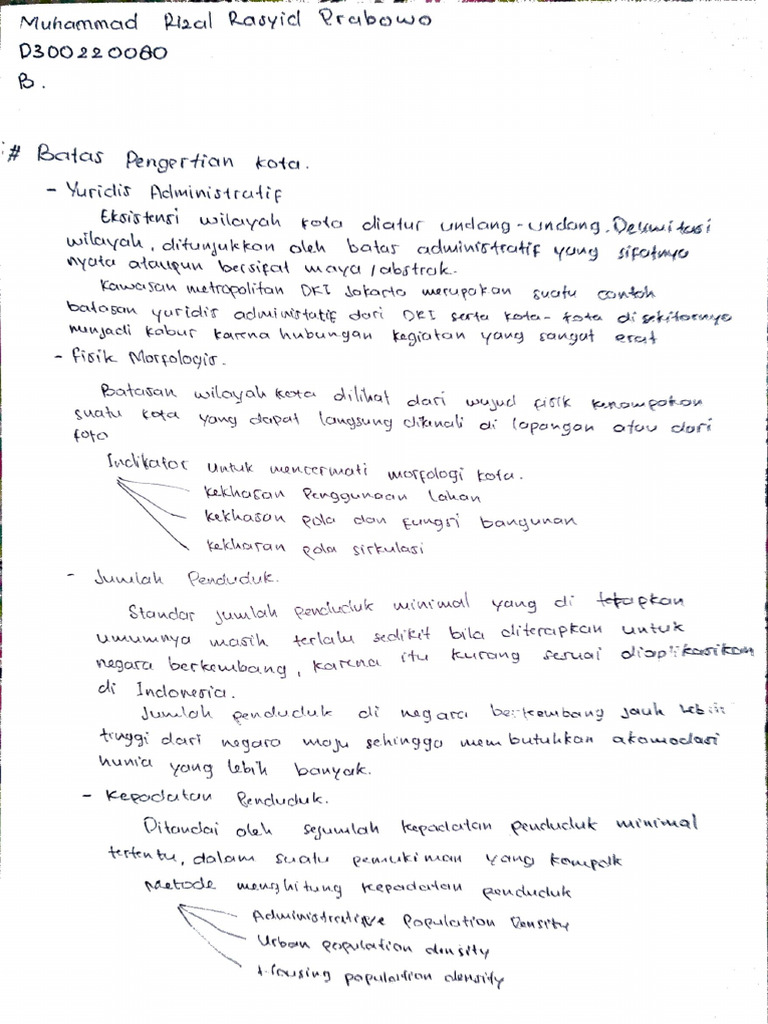 Muhammad Rizal Rasyid Prabowo
D300220080
B.
# Batas Pengertian Kota.
- Yuridis Administratif
Eksistensi wilayah kota diatur undang-undang. Delimitasi
wilayah, ditunjukkan oleh batas administratif yang sifatnya
nyata ataupun bersifat maya/abstrak.
Kawasan metropolitan DKI Jakarta merupakan suatu contoh
batasan yuridis administatif dari DKI serta kota-kota disekitarnya
menjadi kabur karena hubungan kegiatan yang sangat erat
- Fisik Morfologis.
Batasan wilayah kota dilihat dari wujud fisik kenampakan
suatu kota yang dapat langsung dikenali di lapangan atau dari
foto
Indikator untuk mencermati morfologi kota.
kekhasan Penggunaan lahan
kekhasan pola dan fungsi bangunan
kekhasan pola sirkulasi
- Jumlah Penduduk.
Standar jumlah penduduk minimal yang di tetapkan
umumnya masih terlalu sedikit bila diterapkan untuk
negara berkembang, karena itu kurang sesuai diaplikasikan
di Indonesia.
Jumlah penduduk di negara berkembang jauh lebih
tinggi dari negara maju sehingga membutuhkan akomodasi
hunia yang lebih banyak.
- Kepadatan Penduduk.
Ditandai oleh sejumlah kepadatan penduduk minimal
tertentu, dalam suatu pemukiman yang kompak
Metode menghitung kepadatan penduduk
Administrative Population Density
Urban population density
Housing population density